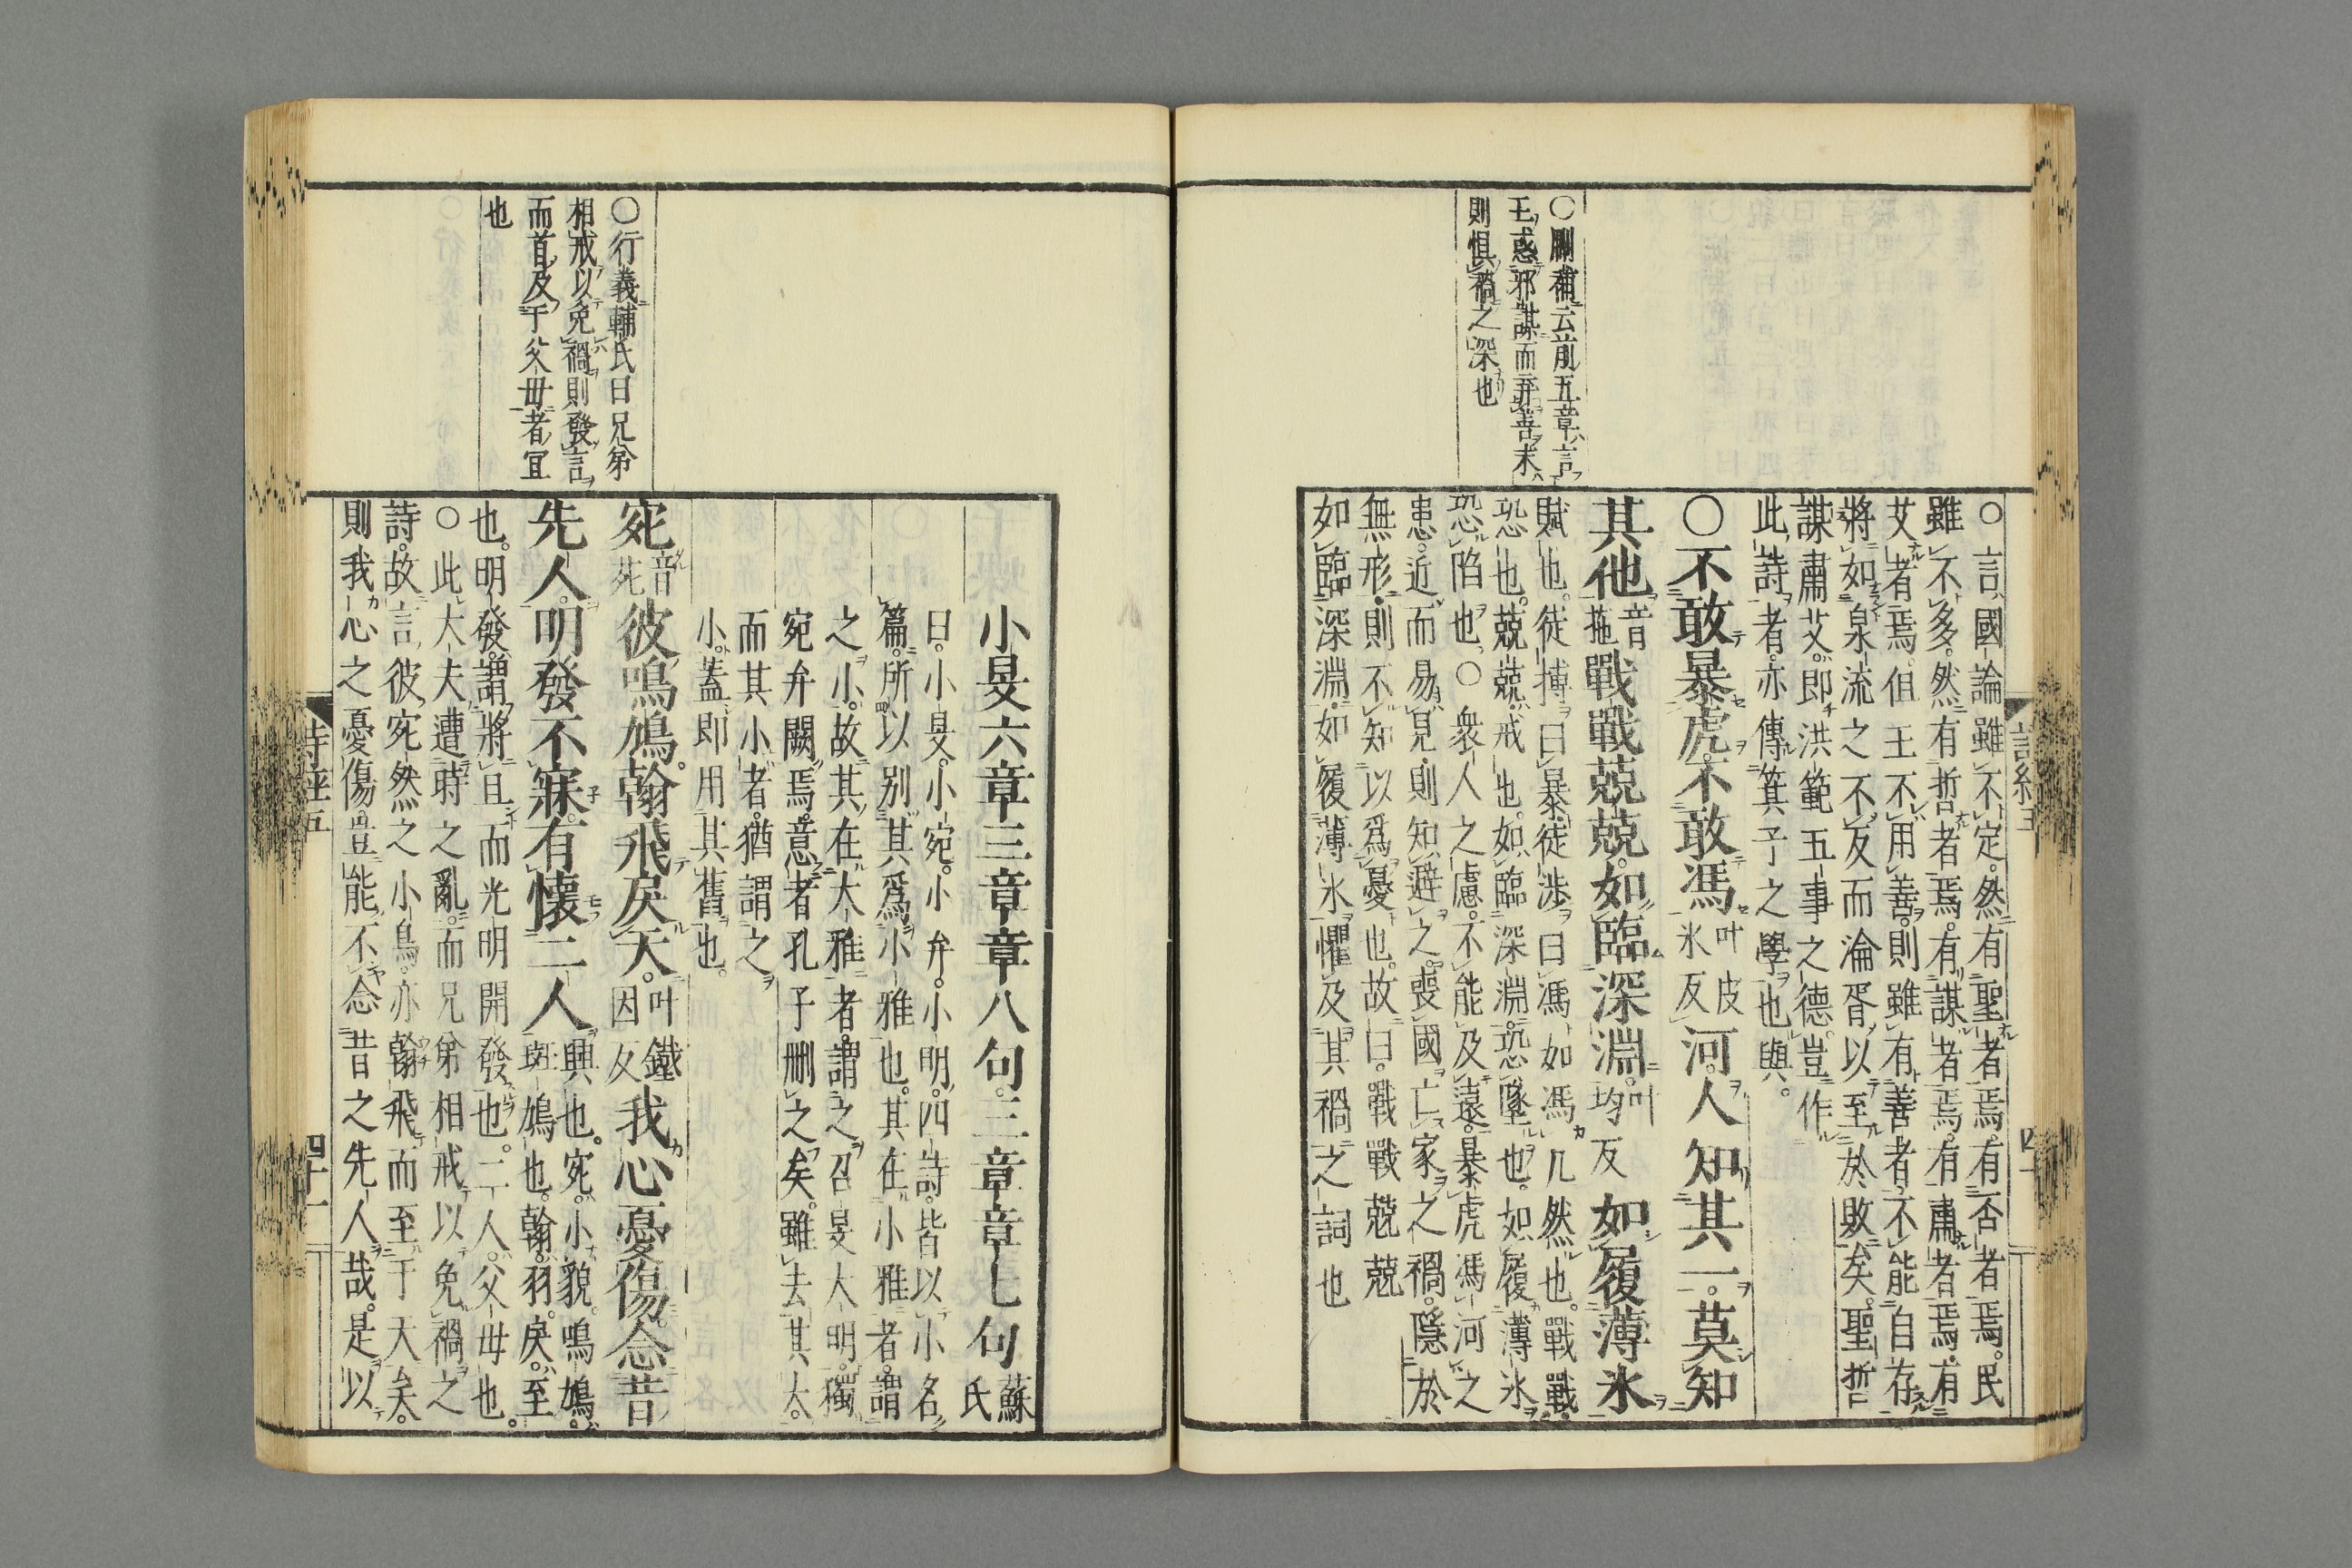 ○刪補云前五章言
王惑邪謀而弃善末
則惧禍之深也
○言國論雖不定然有聖者焉有否者焉民
雖不多然有哲者焉有謀者焉有肅者焉有
艾者焉但王不用善則雖有善者不能自存
將如泉流之不反而淪胥以至於敗矣聖哲
謀肅艾即洪範五事之德豈作
此詩者亦傳箕子之學也與
○不敢暴虎不敢馮叶皮氷反河人知其一莫知
其他音拖戰戰兢兢如臨深淵叶均反如履薄氷
賦也徒搏曰暴徒渉曰馮如馮几然也戰戰
恐也兢兢戒也如臨深淵恐墜也如履薄氷
恐陷也○衆人之慮不能及遠暴虎馮河之
患近而易見則知避之喪國亡家之禍隱於
無形則不知以爲憂也故曰戰戰兢兢
如臨深淵如履薄氷懼及其禍之詞也
○行義輔氏曰兄弟
相戒以免禍則發言
而首及于父毋者宜
也
小旻六章三章章八句三章章七句蘇氏
曰小旻小宛小弁小明四詩皆以小名
篇所以別其爲小雅也其在小雅者謂
之小故其在大雅者謂之召旻大明獨
宛弁闕焉意者孔子刪之矣雖去其大
而其小者猶謂之
小蓋即用其舊也
宛音苑彼鳴鳩翰飛戾天叶鐵因反我心憂傷念昔
先人明發不寐有懷二人
興也宛小貌鳴鳩
斑鳩也翰羽戾至
也明發謂將旦而光明開發也二人父毋也
○此大夫遭時之亂而兄弟相戒以免禍之
詩故言彼宛然之小鳥亦翰飛而至于天矣
則我心之憂傷豈能不念昔之先人哉是以
四十一